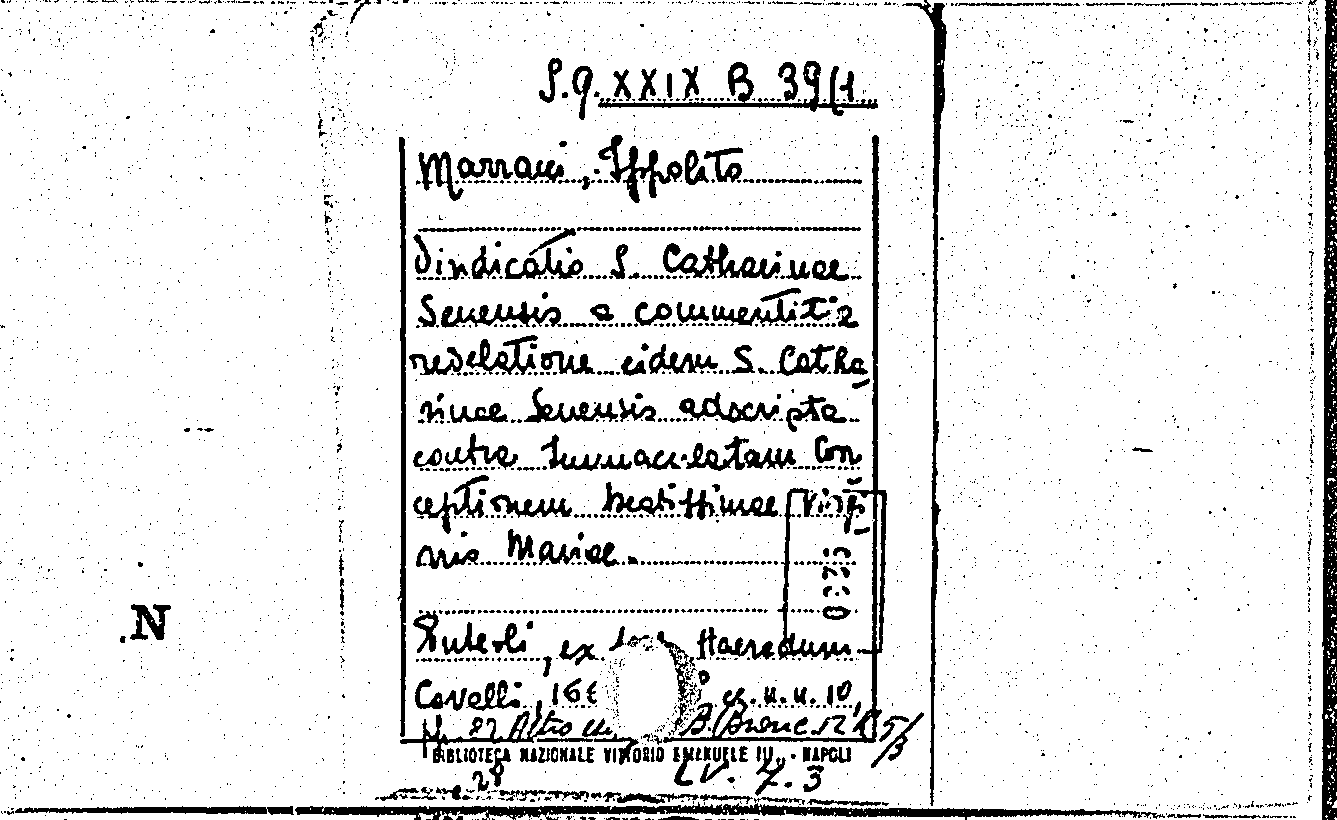 S.q. XXIX B 39(1
Marracci, Ippolito
Vindicatio S. Catharinae
Senensis a commentitia
revelatione eidem S. Catha
rinae Senensis adscripta
contra Immaculatam Con
ceptionem Beatissimae Virgi
nis Mariae.
Puteoli, ex Haeredum
Cavelli, 16 cc. n. n. 10,
pp. 27 Altro B. Branc. 12 K 5/3
BIBLIOTECA NAZIONALE VITTORIO EMANUELE III - NAPOLI
28 LV. 7.3
N